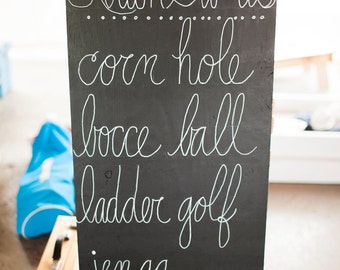 corn hole
bocce ball
ladder golf
jenga